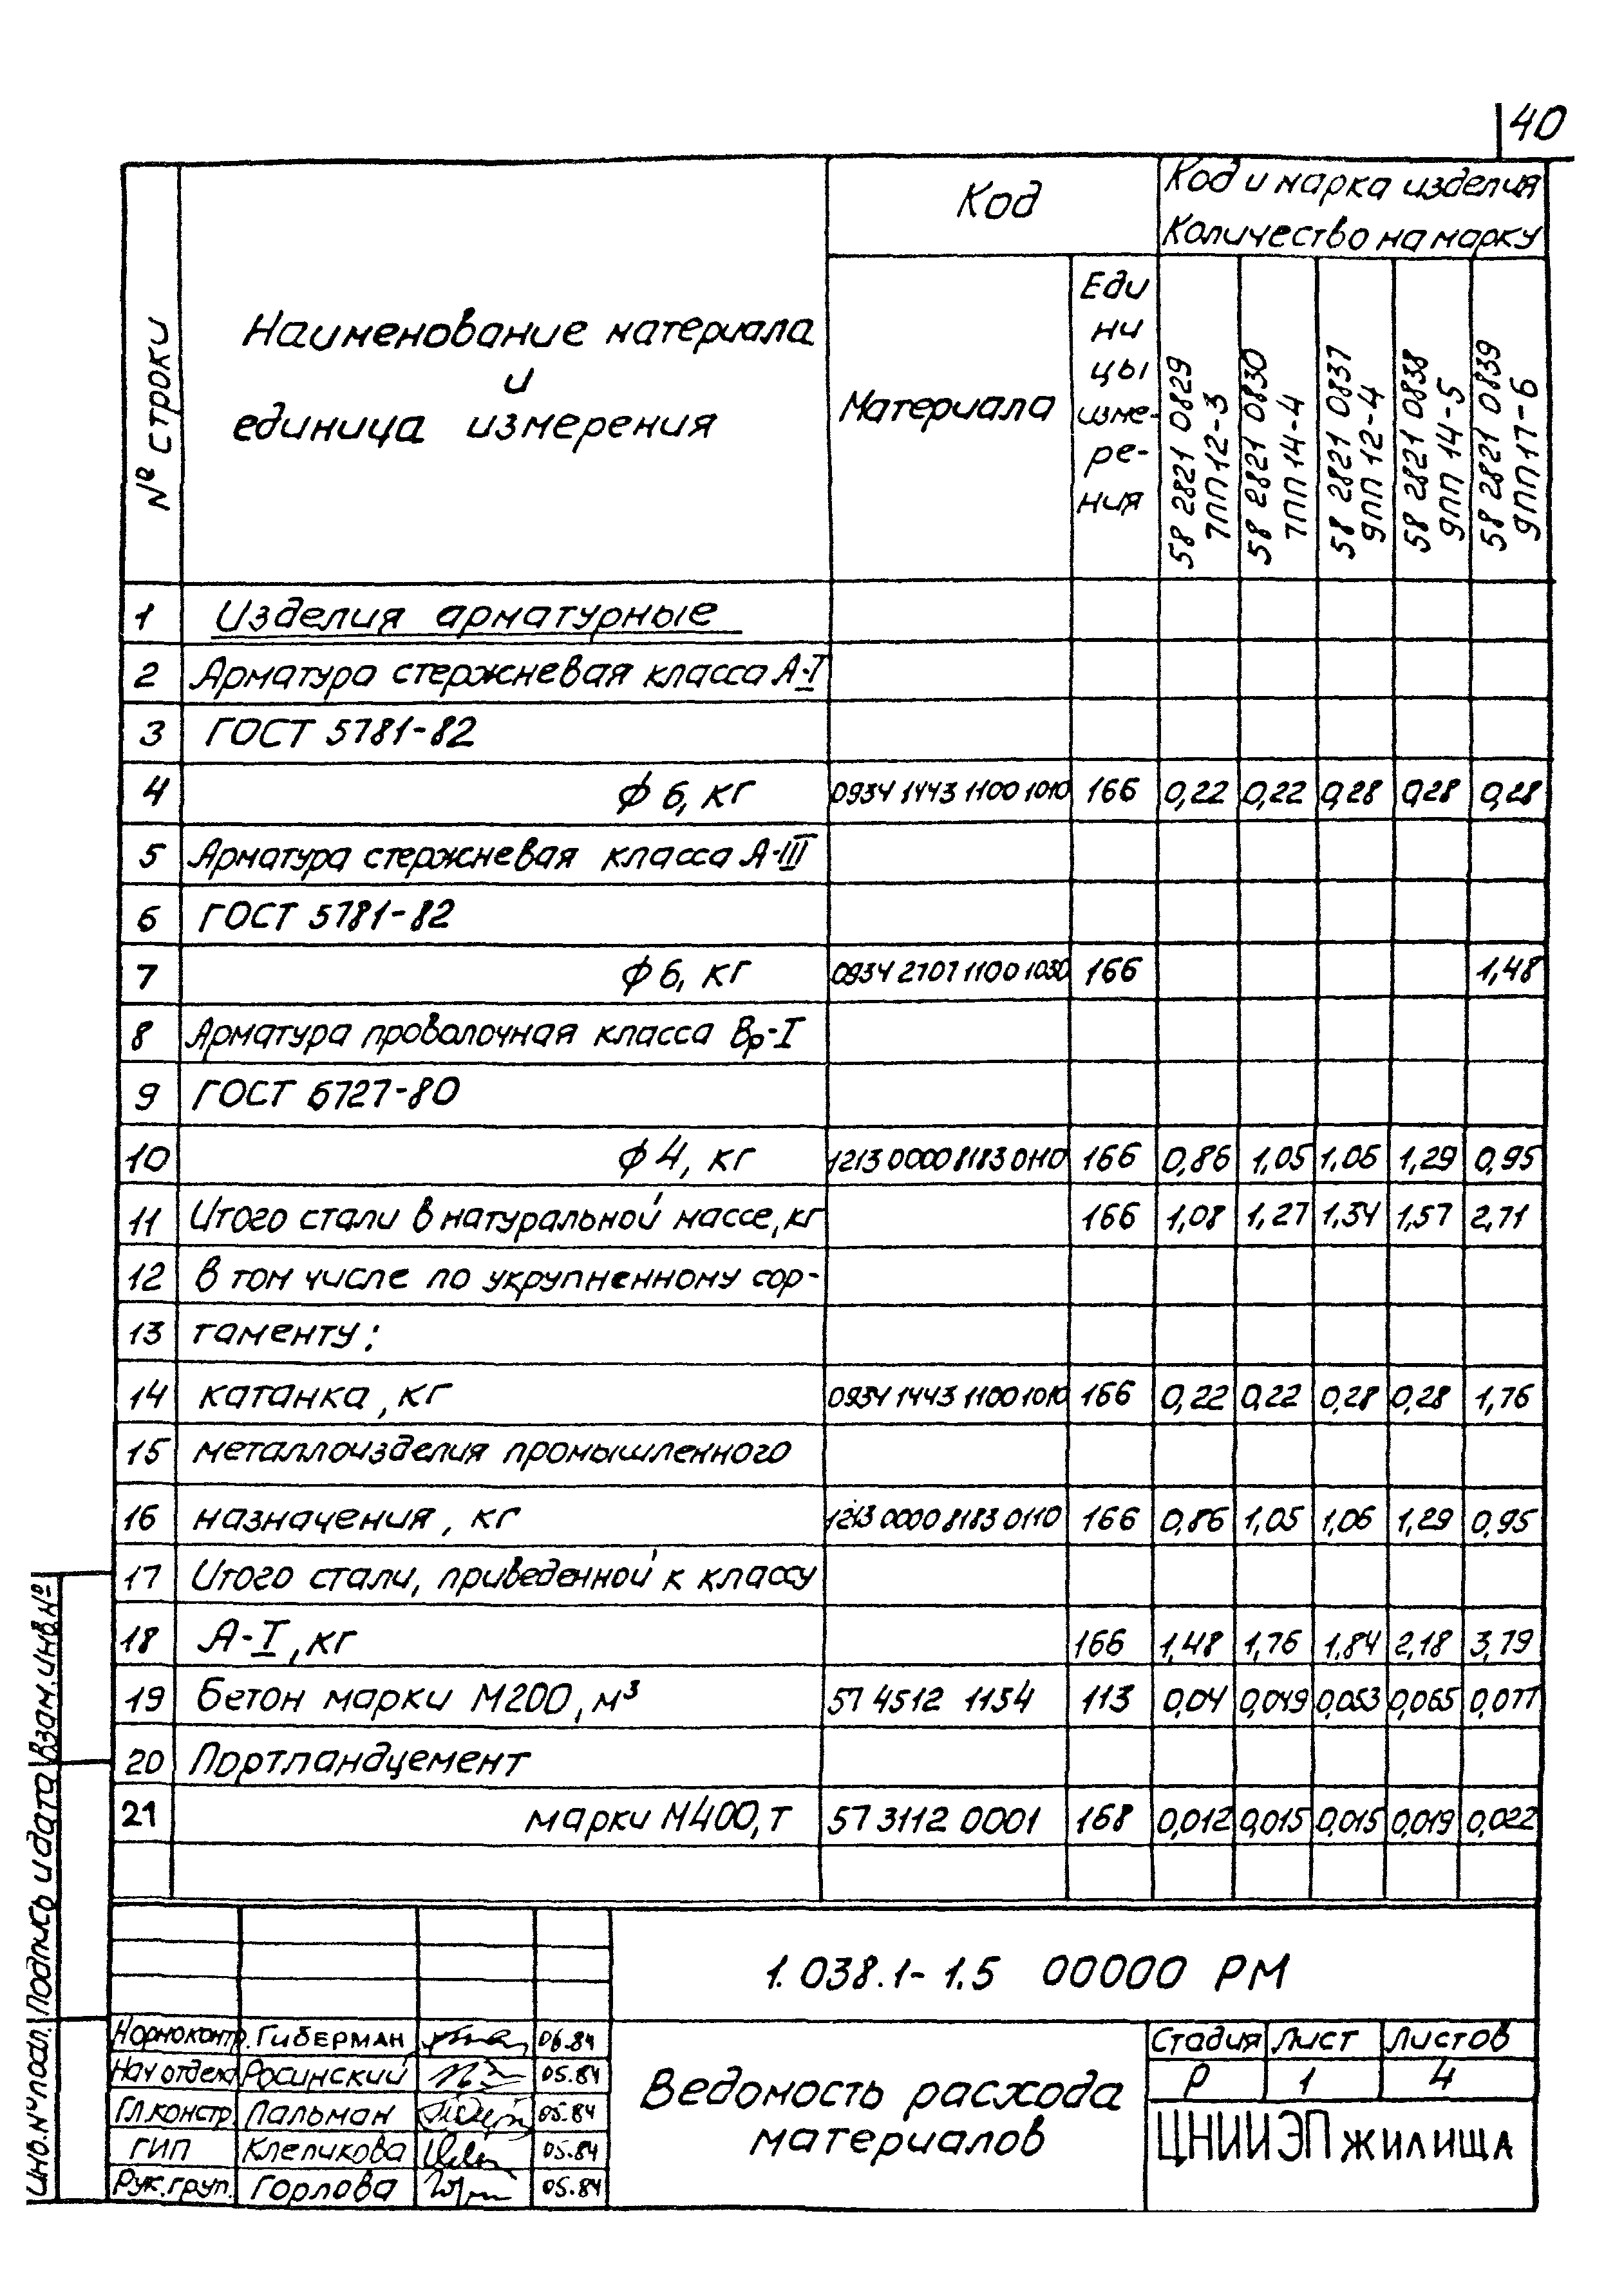 40
№ строки
Наименование материала
и
единица измерения
Код
Материала
Еди
ни
цы
изме-
ре-
ния
Код и марка изделия
Количество на марку
58 2821 0829
7ПП 12-3
58 2821 0830
7ПП 14-4
58 2821 0837
9ПП 12-4
58 2821 0838
9ПП 14-5
58 2821 0839
9ПП 17-6
1 Изделия арматурные
2 Арматура стержневая класса А-I
3 ГОСТ 5781-82
4 ф 6, кг 0934 1443 1100 1010 166 0,22 0,22 0,28 0,28 0,28
5 Арматура стержневая класса А-III
6 ГОСТ 5781-82
7 ф 6, кг 0934 2707 1100 1030 166 1,48
8 Арматура проволочная класса Вр-I
9 ГОСТ 6727-80
10 ф 4, кг 1213 0000 8183 0110 166 0,86 1,05 1,06 1,29 0,95
11 Итого стали в натуральной массе, кг 166 1,08 1,27 1,34 1,57 2,71
12 в том числе по укрупненному сор-
13 таменту:
14 катанка, кг 0934 1443 1100 1010 166 0,22 0,22 0,28 0,28 1,76
15 металлоизделия промышленного
16 назначения, кг 1213 0000 8183 0110 166 0,86 1,05 1,06 1,29 0,95
17 Итого стали, приведенной к классу
18 А-I, кг 166 1,48 1,76 1,84 2,18 3,79
19 Бетон марки М200, м³ 57 4512 1154 113 0,04 0,049 0,053 0,065 0,077
20 Портландцемент
21 марки М400, т 57 3112 0001 168 0,012 0,015 0,015 0,019 0,022
Инв. № подл. Подпись и дата Взам. инв. №
1.038.1-1.5 00000 РМ
Нормоконтр. Гиберман 06.84
Нач отдела Росинский 05.84
Гл. констр. Пальман 05.84
ГИП Клепикова 05.84
Рук. груп. Горлова 05.84
Ведомость расхода
материалов
Стадия Лист Листов
Р 1 4
ЦНИИЭП жилища